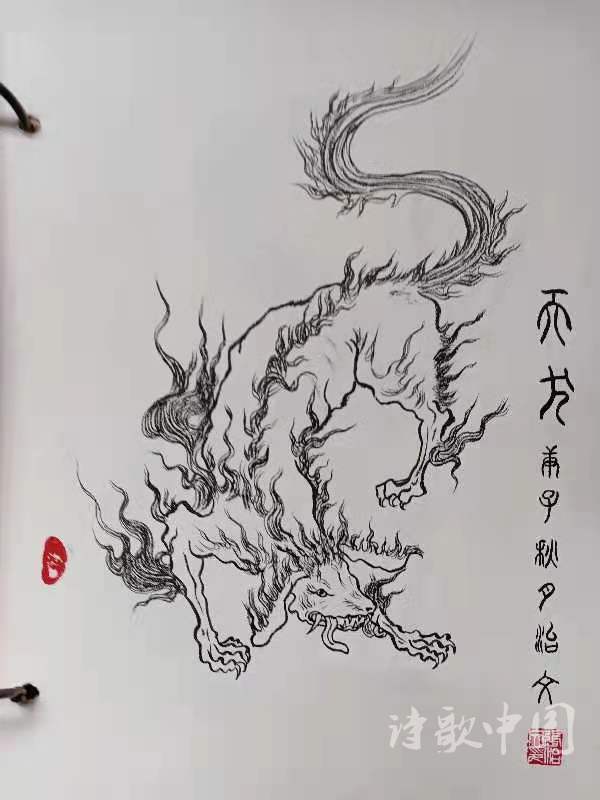 天犬 庚子秋月治文
诗歌中国